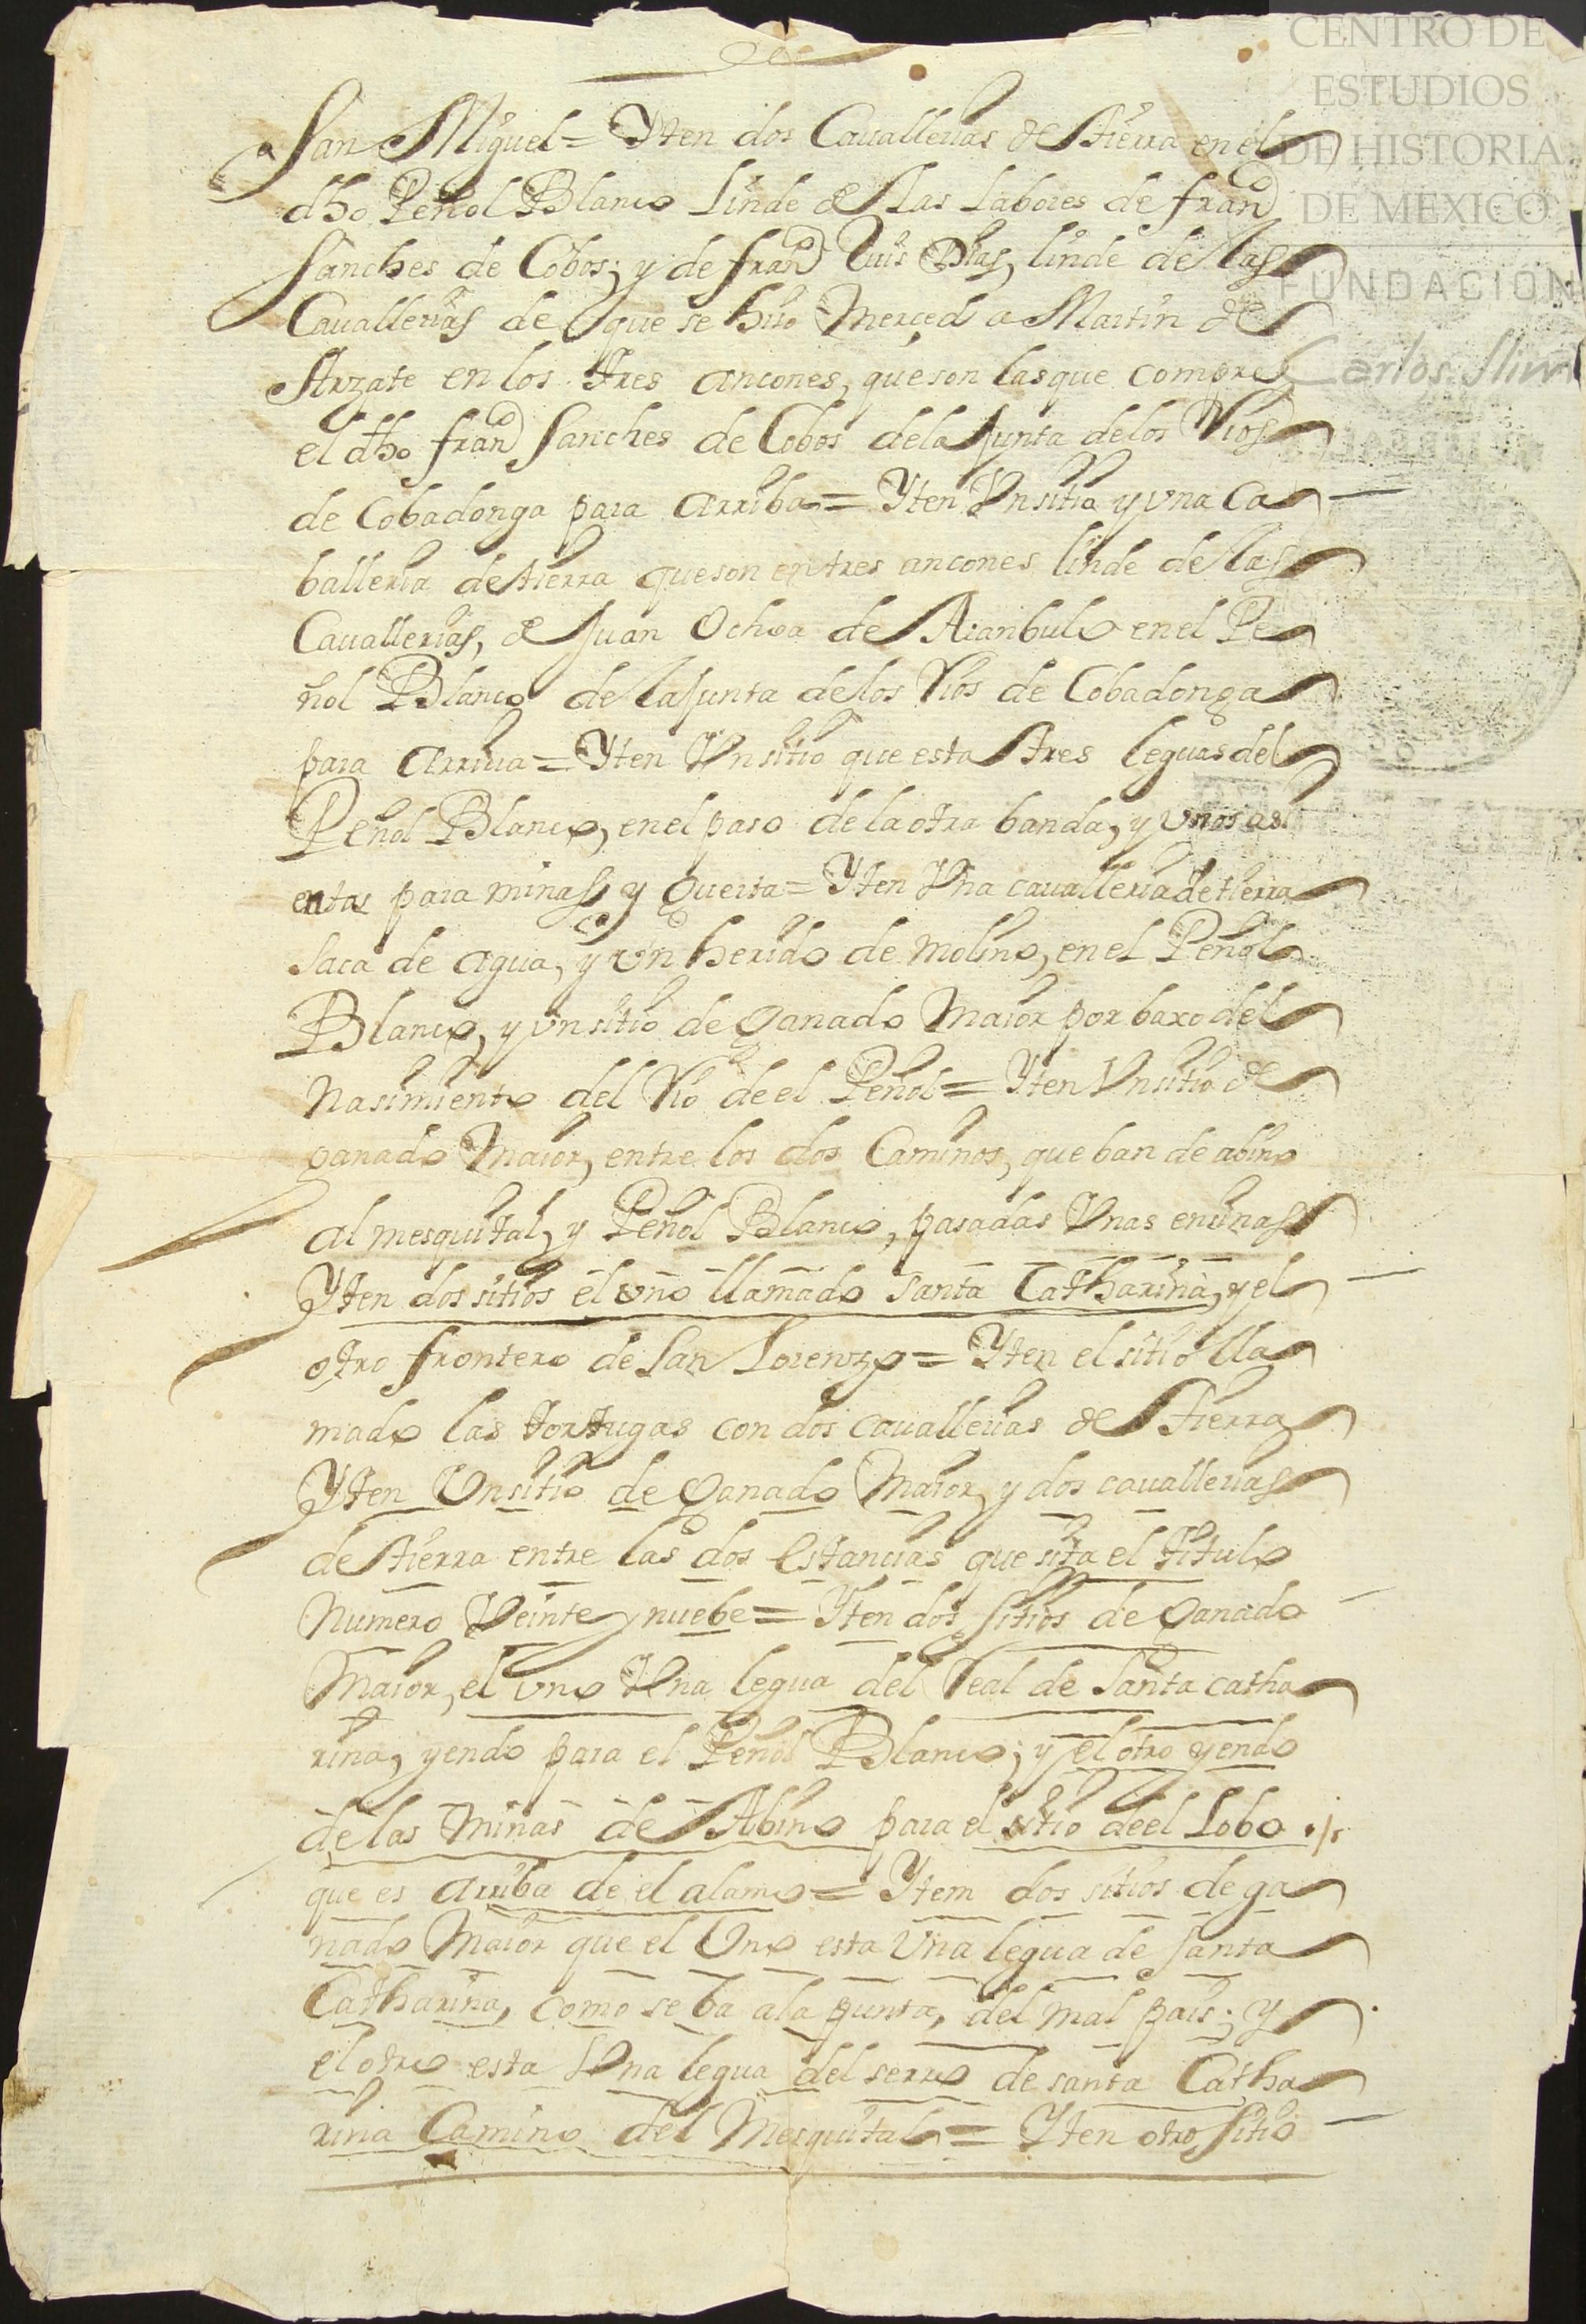 San Miguel = Yten dos Cauallerias de tierra en el
dho Peñol Blanco linde de las labores de franco
Sanches de Cobos; y de franco Luis Dias, linde de las
Cauallerias de que se hiso Merçed a Martin de
Arzate en los tres ancones, que son las que compre
el dho franco Sanches de Cobos de la Junta de los Rios
de Cobadonga para arriba = Yten Vn sitio y vna ca
balleria de tierra que son en tres ancones linde de las
Cauallerias, de Juan Ochoa de Aranbulo en el Pe
ñol Blanco de la junta de los Rios de Cobadonga
para arriua = Yten Vn sitio que esta tres leguas del
Peñol Blanco, en el paso de la otra banda, y vnos asi
entos para minas, y Guerta = Yten Vna caualleria de tierra
saca de agua, y vn herido de molino, en el Peñol
Blanco, y vn sitio de ganado Maior por baxo del
Nasimiento del Rio de el Peñol = Yten Vn sitio de
ganado Maior, entre los dos Caminos, que ban de abino
al mesquital, y Peñol Blanco, pasadas Vnas ensinas
Yten dos sitios el vno llamado Santa Catharina, y el
otro frontero de San Lorenzo = Yten el sitio lla
mado las tortugas con dos cauallerias de tierra
Yten Vn sitio de Ganado Maior, y dos cauallerias
de tierra entre las dos Estancias que sita el titulo
Numero Veinte y nuebe = Yten dos sitios de Ganado
Maior, el vno Vna legua del Real de Santa catha
rina, yendo para el Peñol Blanco; y el otro yendo
de las Minas de Abino para el sitio de el Lobo
que es arriba de el alamo = Ytem dos sitios de ga
nado Maior que el Vno esta Vna legua de Santa
Catharina, como se ba a la punta, del mal pais; y
el otro esta Vna legua del serro de santa Catha
rina Camino del Mesquital = Yten otro sitio
CENTRO DE
ESTUDIOS
DE HISTORIA
DE MEXICO
FUNDACIÓN
Carlos Slim